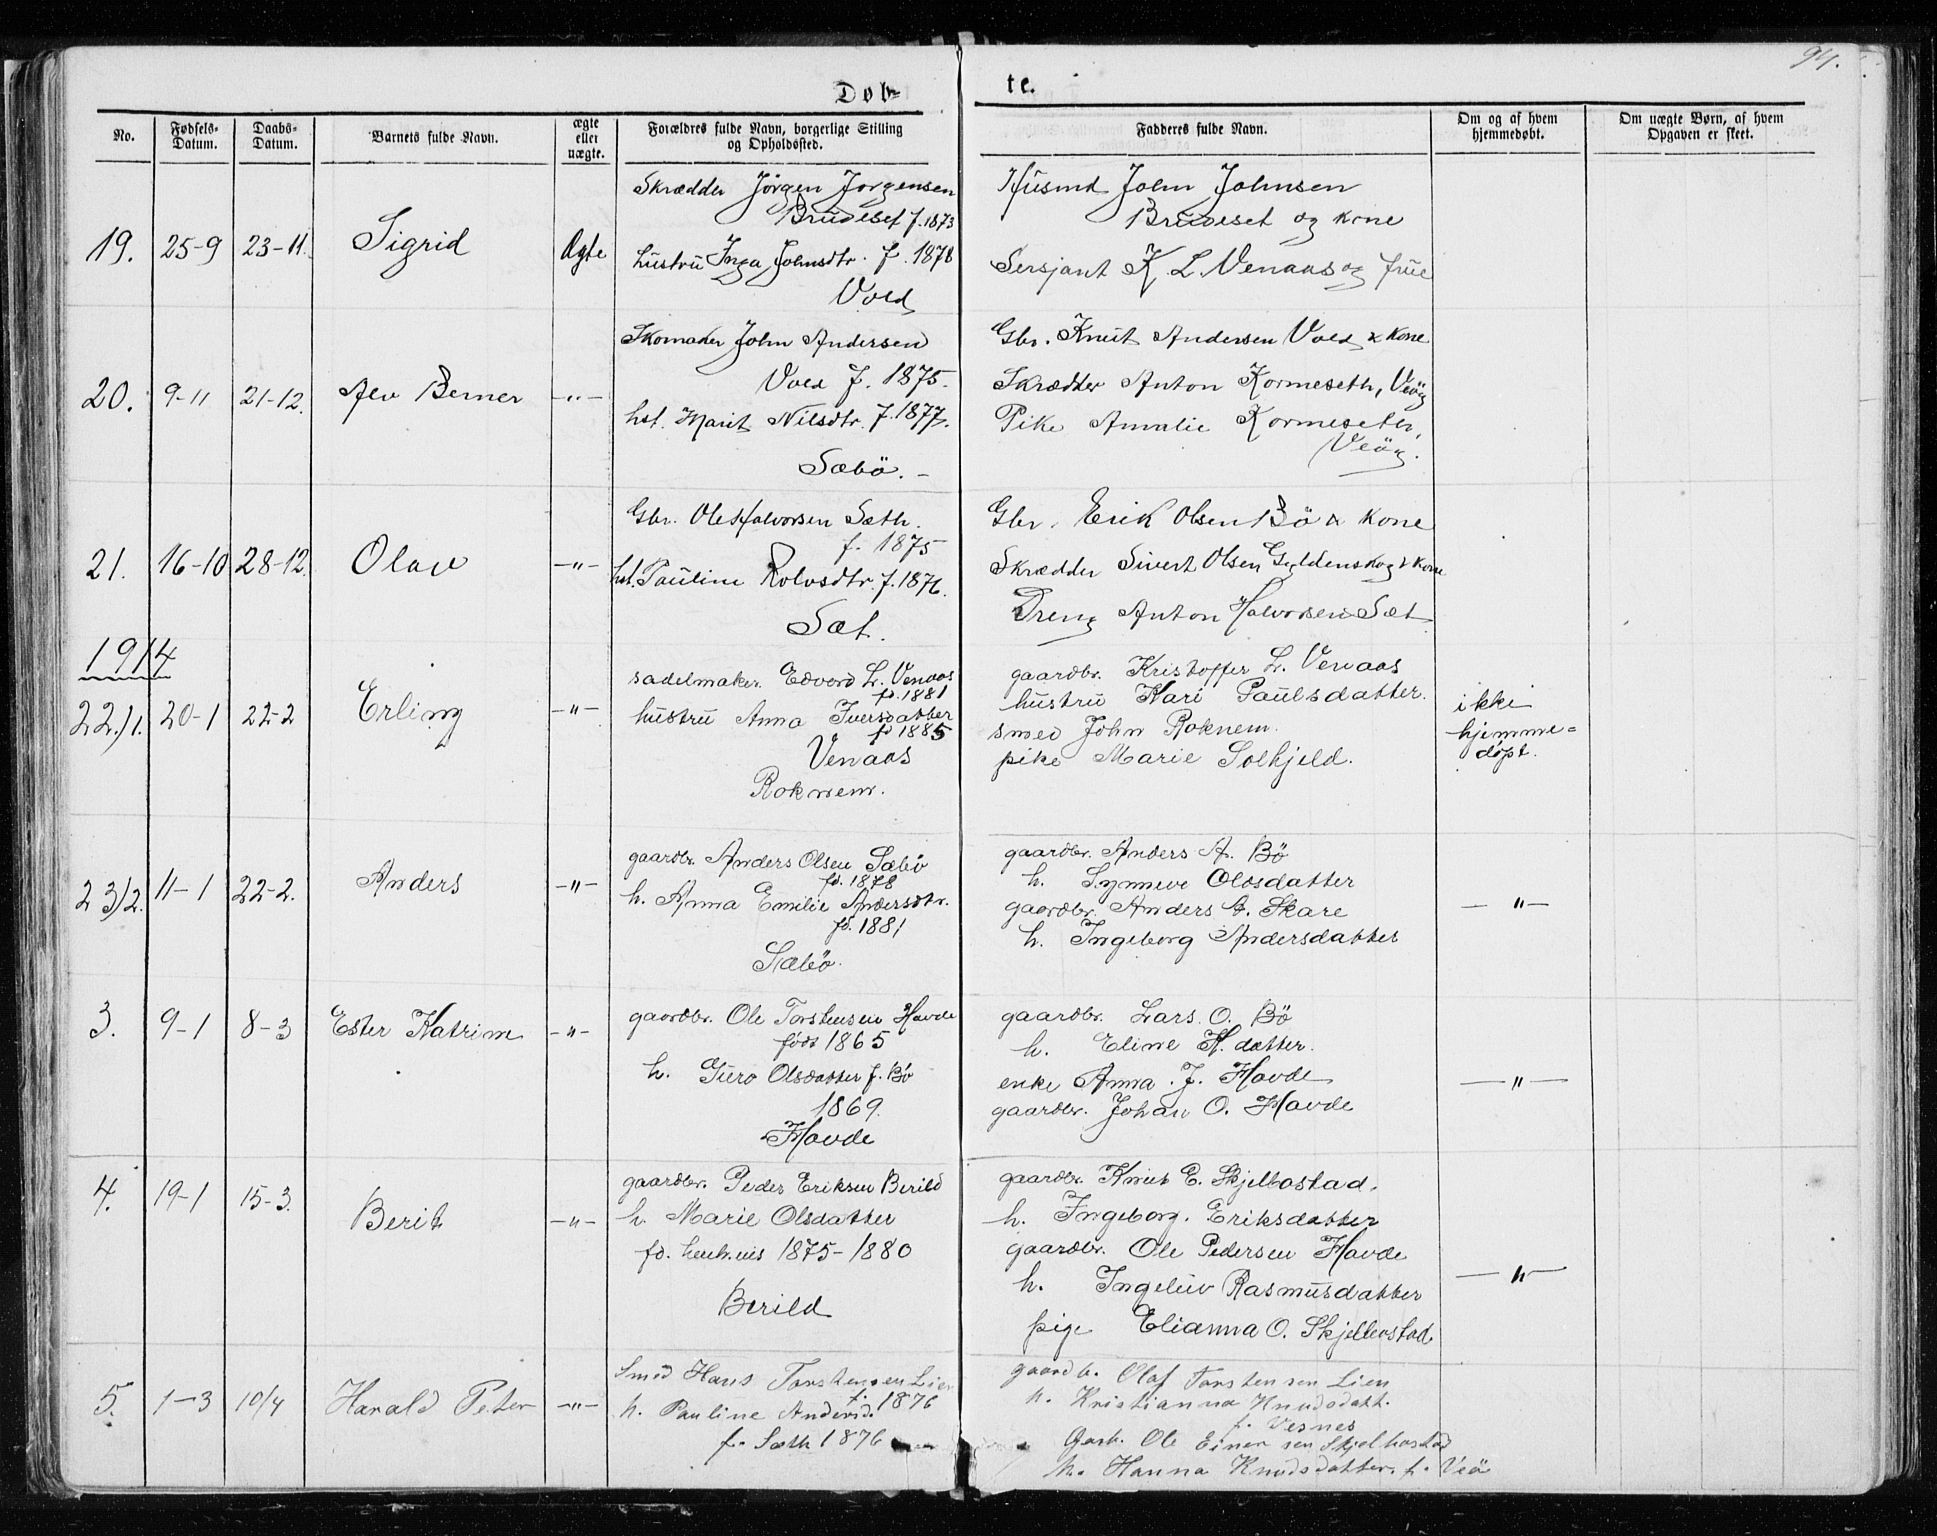 94.
Døb-
te.
No.
Fødsels-
Datum.
Daabs-
Datum.
Barnets fulde Navn.
ægte
eller
uægte.
Forældres fulde Navn, borgerlige Stilling
og Opholdssted.
Fadderes fulde Navn.
Om og af hvem
hjemmedøbt.
Om uægte Børn, af hvem
Opgaven er skeet.
19.
25-9
23-11.
Sigrid
Ægte
Skrædder Jörgen Jorgensen
Brudeset f. 1873
hustru Inga Johnsdtr. f. 1878
Vold
Husmd John Johnsen
Brudeset og kone
Sersjant K. L. Venaas og frue
20.
9-11
21-12.
Alv Berner
-"-
Skomader John Andersen
Vold f. 1875.
hst. Marit Nilsdtr. f. 1877.
Sæbö. -
Gbr. Knut Andersen Vold & kone
Skrædder Anton Kormeseth, Veöy
Pike Amalie Kormeseth,
Veöy.
21.
16-10
28-12.
Olav
-"-
Gbr. Ole Halvorsen Sæth.
f. 1875
hst. Pauline Rolvsdtr. f. 1876.
Sæt.
Gbr. Erik Olsen Bö & kone
Skrædder Sivert Olsen Gyldenskog & kone
Dreng Anton Halvorsen Sæt
1914
22.)1.
20-1
22-2
Erling
-"-
sadelmaker. Edvard L. Venaas
fd. 1881
hustru Anna Iversdatter
fd 1885
Venaas
Roknem.
gaardbr. Kristoffer L. Venaas
hustru Kari Paulsdatter.
smed John Roknem.
pike Marie Solhjeld.
ikke
hjemme=
döpt.
23)2.
11-1
22-2.
Anders
-"-
gaardbr. Anders Olsen Sæbö
fd. 1878
h. Anna Emilie Andersdtr.
fd. 1881
Sæbö.
gaardbr. Anders A. Bö
h. Synneve Olosdatter
gaardbr. Anders A. Skare
h. Ingeborg Andersdatter
-"-
3.
9-1
8-3
Ester Katrine
-"-
gaardbr. Ole Torstensen Havde
födt 1865
h. Guro Olsdatter f. Bö
1869.
Havde
gaardbr. Lars O. Bö
h. Eline H. datter.
enke Anna J. Havde
gaardbr. Johan O. Havde
-"-
4.
19-1
15-3.
Berit
-"-
gaardbr. Peder Eriksen Berild
h. Marie Olsdatter
fd. henh.vis 1875-1880
Berild
gaardbr. Knut E. Skjelbostad.
h. Ingeborg Eriksdatter
gaardbr. Ole Pedersen Havde
h. Ingeluv Rasmusdatter
pige Elianna O. Skjelbostad
-"-
5.
1-3
10/4
Harald Peter
-"-
Smed Hans Torstensen Lien
f. 1876
h. Pauline Andersd.
f. Sæth 1876
gaardb. Olaf Torstensen Lien
h. Kristianna Knudsdatt.
f. Vesnes
Garb. Ole Einersen Skjelbostad
h. Hanna Knudsdatter. f. Veö